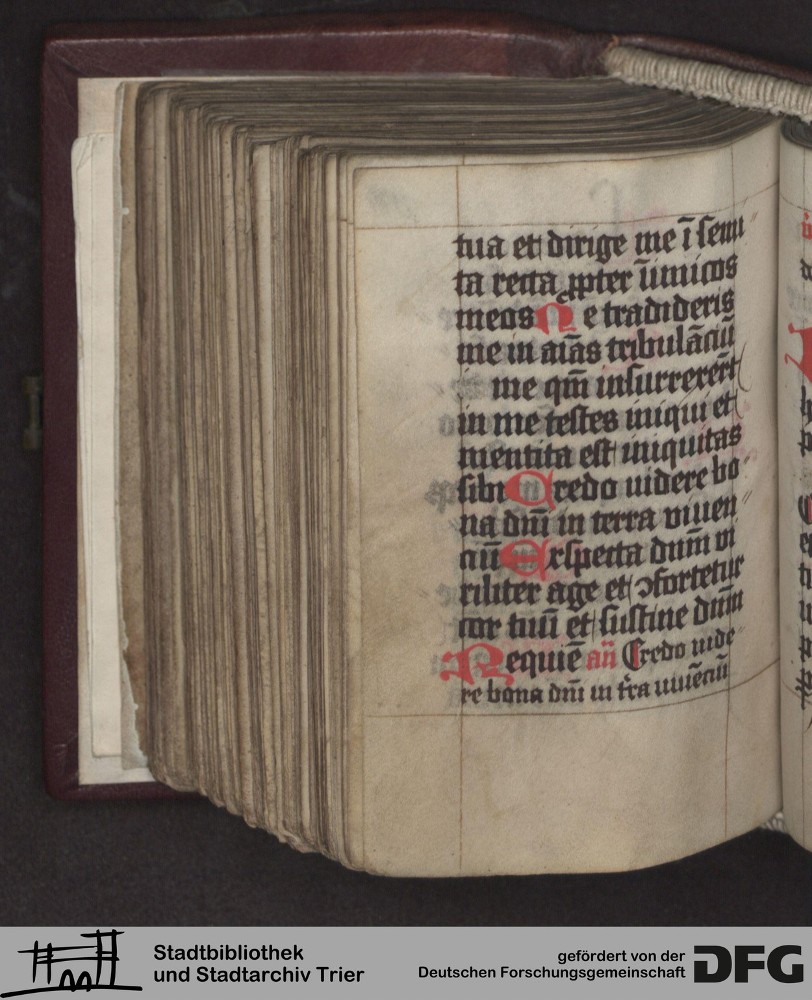 tua et dirige me ī semi
ta recta ꝓpter īimicos
meos Ne tradideris
me in aīas tribulāciū
me qm̄ insurrexerūt
in me testes iniqui et
mentita est iniquitas
sibi Credo uidere bo
na dnī in terra viuen
ciū Exspecta dnm̄ vi
riliter age et ꝯfortetur
cor tuū et sustine dnm̄
Requiē an̄ Credo uide
re bona dnī in t̄ra uiuēciū
Stadtbibliothek
und Stadtarchiv Trier
gefördert von der
Deutschen Forschungsgemeinschaft
DFG